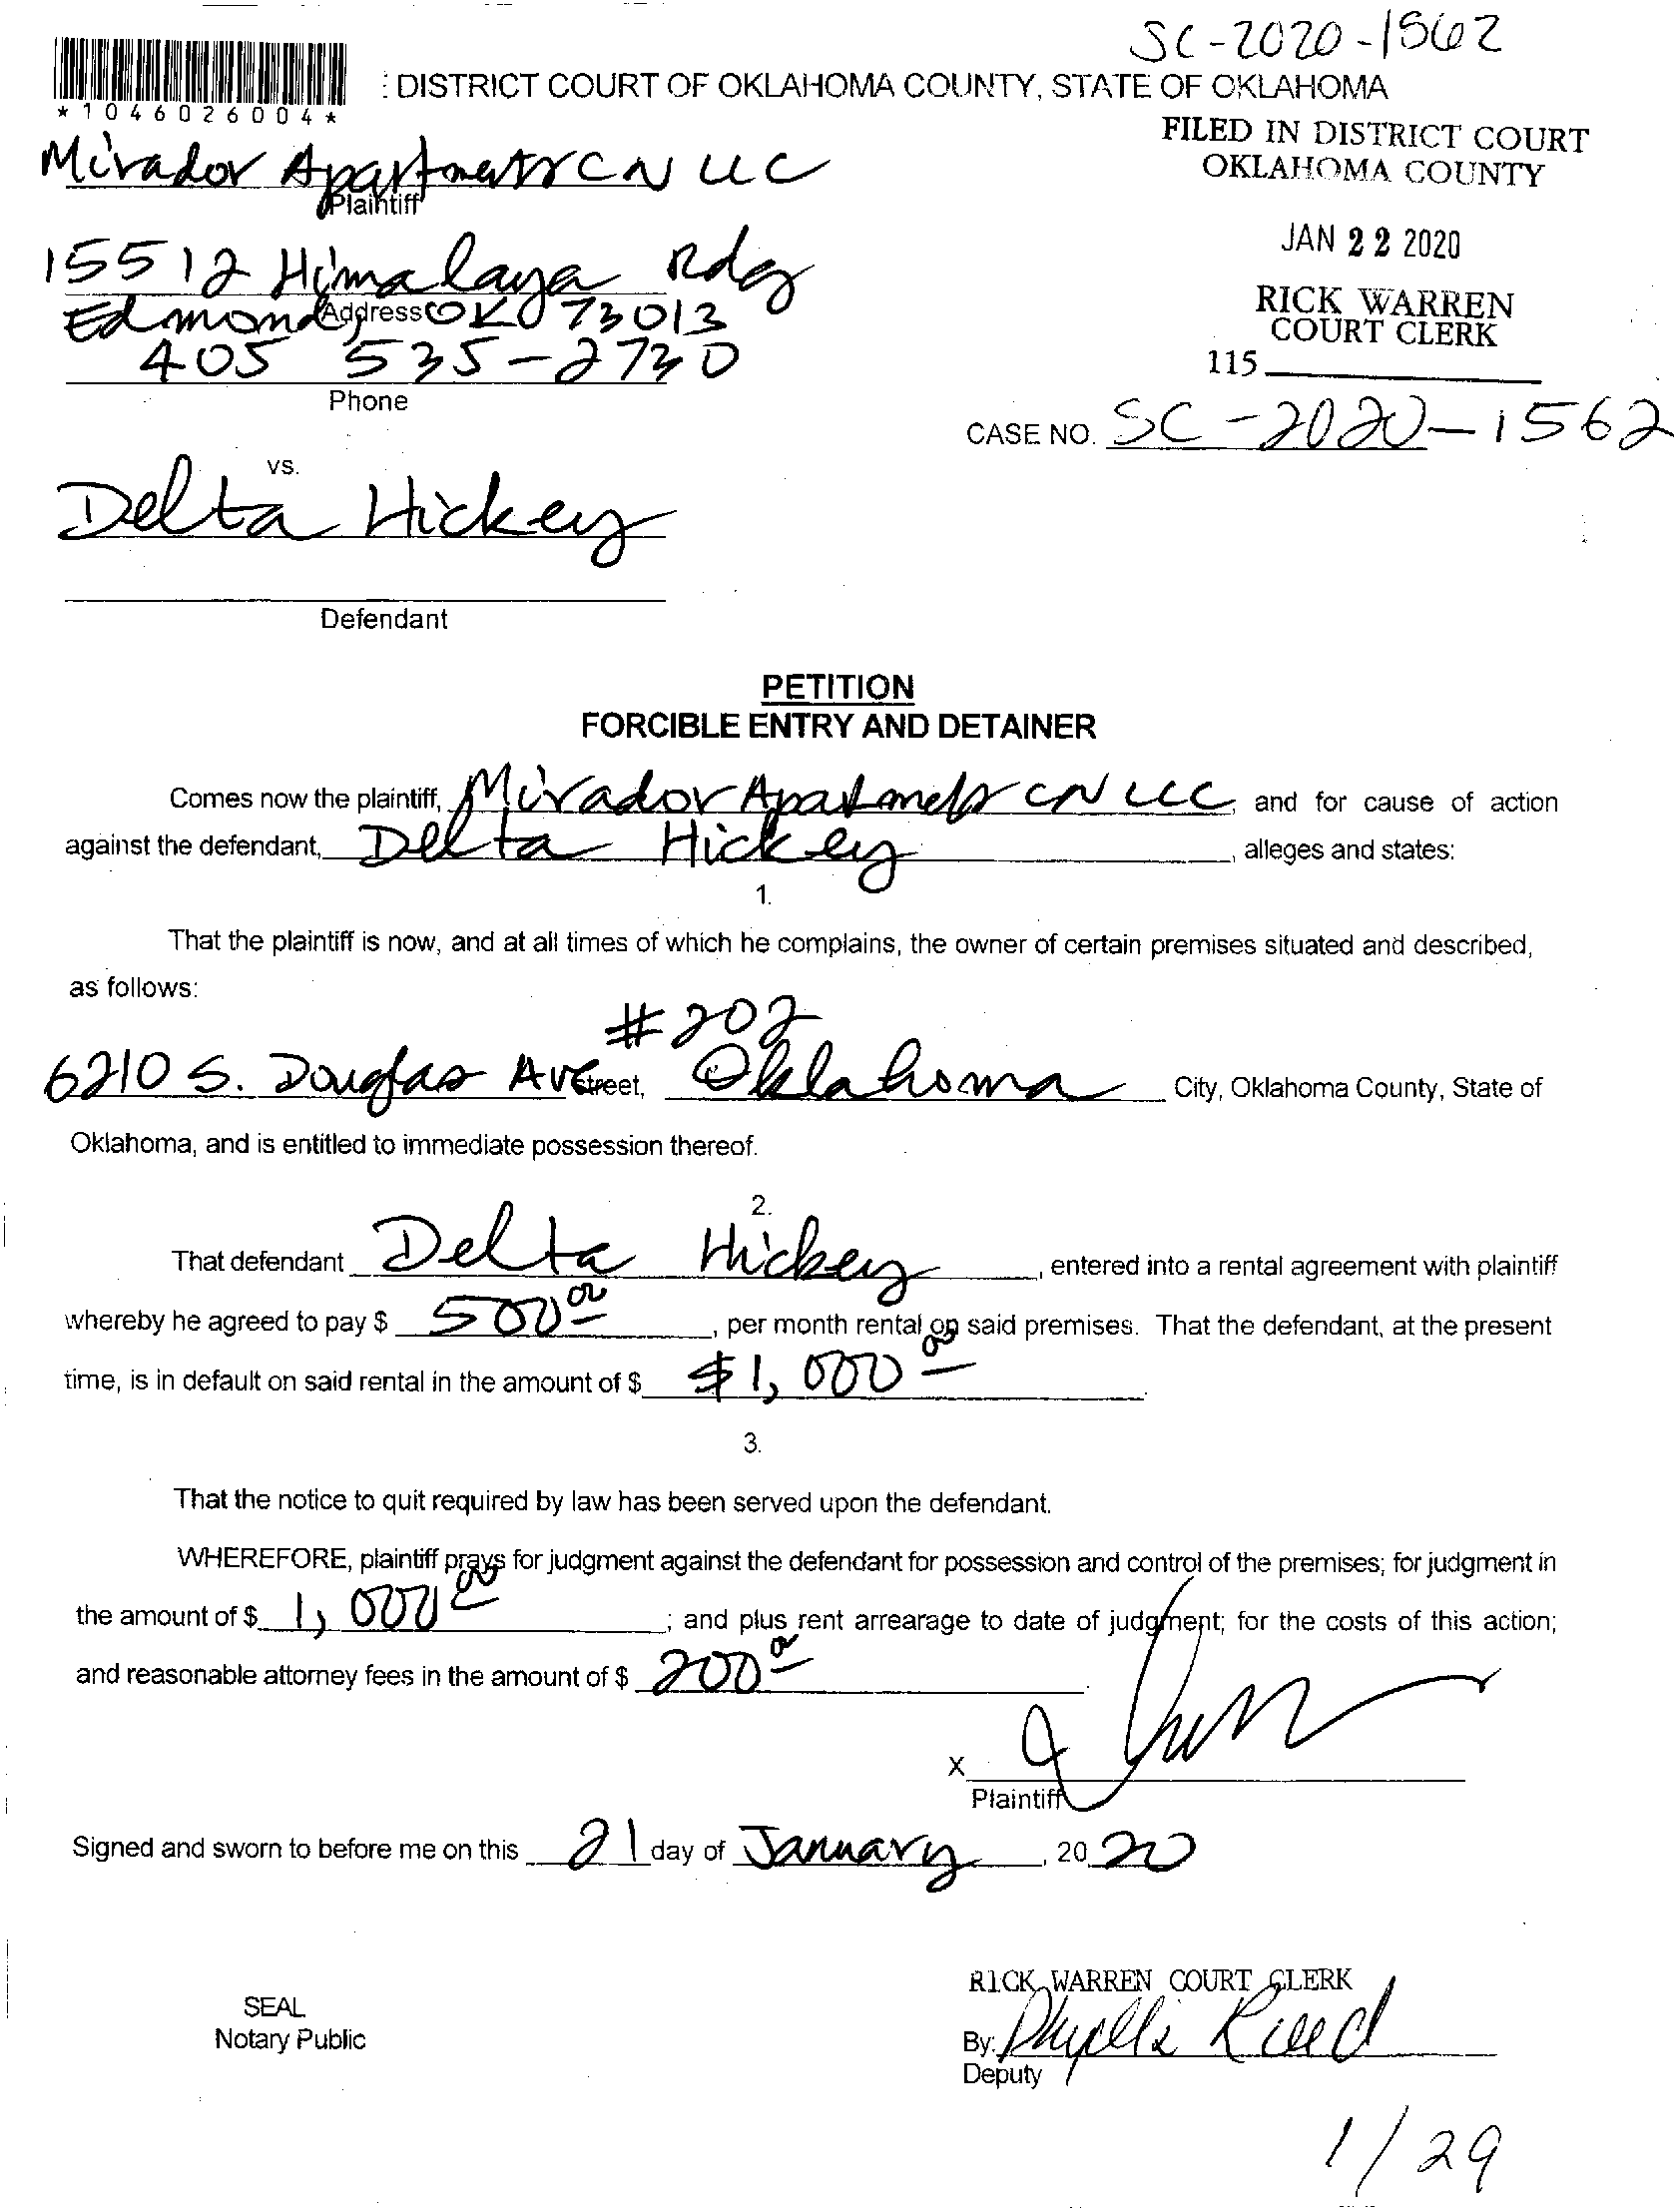 SC-2020-1562
: DISTRICT COURT OF OKLAHOMA COUNTY, STATE OF OKLAHOMA
*1046026004*
FILED IN DISTRICT COURT
OKLAHOMA COUNTY
Mirador Apartments CN LLC
Plaintiff
JAN 22 2020
15512 Himalaya Rdg
RICK WARREN
COURT CLERK
Edmond, OK 73013
Address
405 535-2730
115
Phone
CASE NO. SC-2020-1562
vs.
Delta Hickey
Defendant
PETITION
FORCIBLE ENTRY AND DETAINER
Comes now the plaintiff, Mirador Apartments CN LLC, and for cause of action
against the defendant, Delta Hickey, alleges and states:
1.
That the plaintiff is now, and at all times of which he complains, the owner of certain premises situated and described,
as follows:
#202
6210 S. Douglas Ave Street, Oklahoma City, Oklahoma County, State of
Oklahoma, and is entitled to immediate possession thereof.
2.
That defendant Delta Hickey, entered into a rental agreement with plaintiff
whereby he agreed to pay $ 500 00, per month rental on said premises. That the defendant, at the present
time, is in default on said rental in the amount of $ $1,000 00.
3.
That the notice to quit required by law has been served upon the defendant.
WHEREFORE, plaintiff prays for judgment against the defendant for possession and control of the premises; for judgment in
the amount of $ 1,000 00; and plus rent arrearage to date of judgment; for the costs of this action;
and reasonable attorney fees in the amount of $ 200 00.
X
Plaintiff
Signed and sworn to before me on this 21 day of January, 20 20
RICK WARREN COURT CLERK
SEAL
Notary Public
By: Phyllis Reed
Deputy
1/29